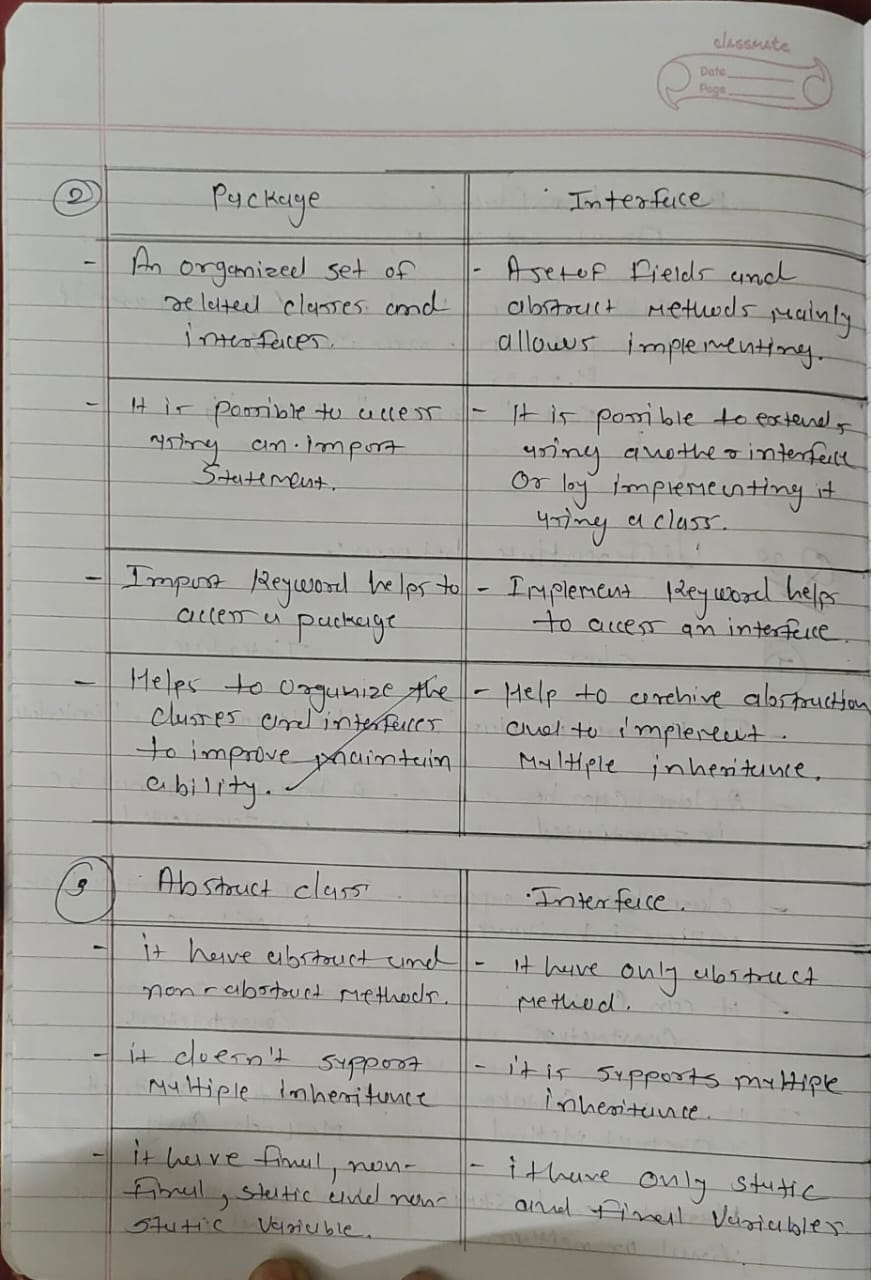 classmate
Date
Page
2
Package
Interface
- An organized set of
related classes and
interfaces.
- A set of fields and
abstract methods mainly
allows implementing.
- It is possible to access
using an import
statement.
- It is possible to extend,
using another interface
Or by implementing it
using a class.
- Import Keyword helps to
access a package
- Implement Keyword helps
to access an interface.
- Helps to organize the
classes and interfaces
to improve maintain
ability.
- Help to acehive abstraction
and to implement.
Multiple inheritance.
3
Abstract class
Interface.
- it have abstract and
non-abstract methods.
- it have only abstract
method.
- it doesn't support
Multiple inheritance
- it is supports multiple
inheritance.
- it have final, non-
final, static and non-
static variable.
- it have only static
and final variables